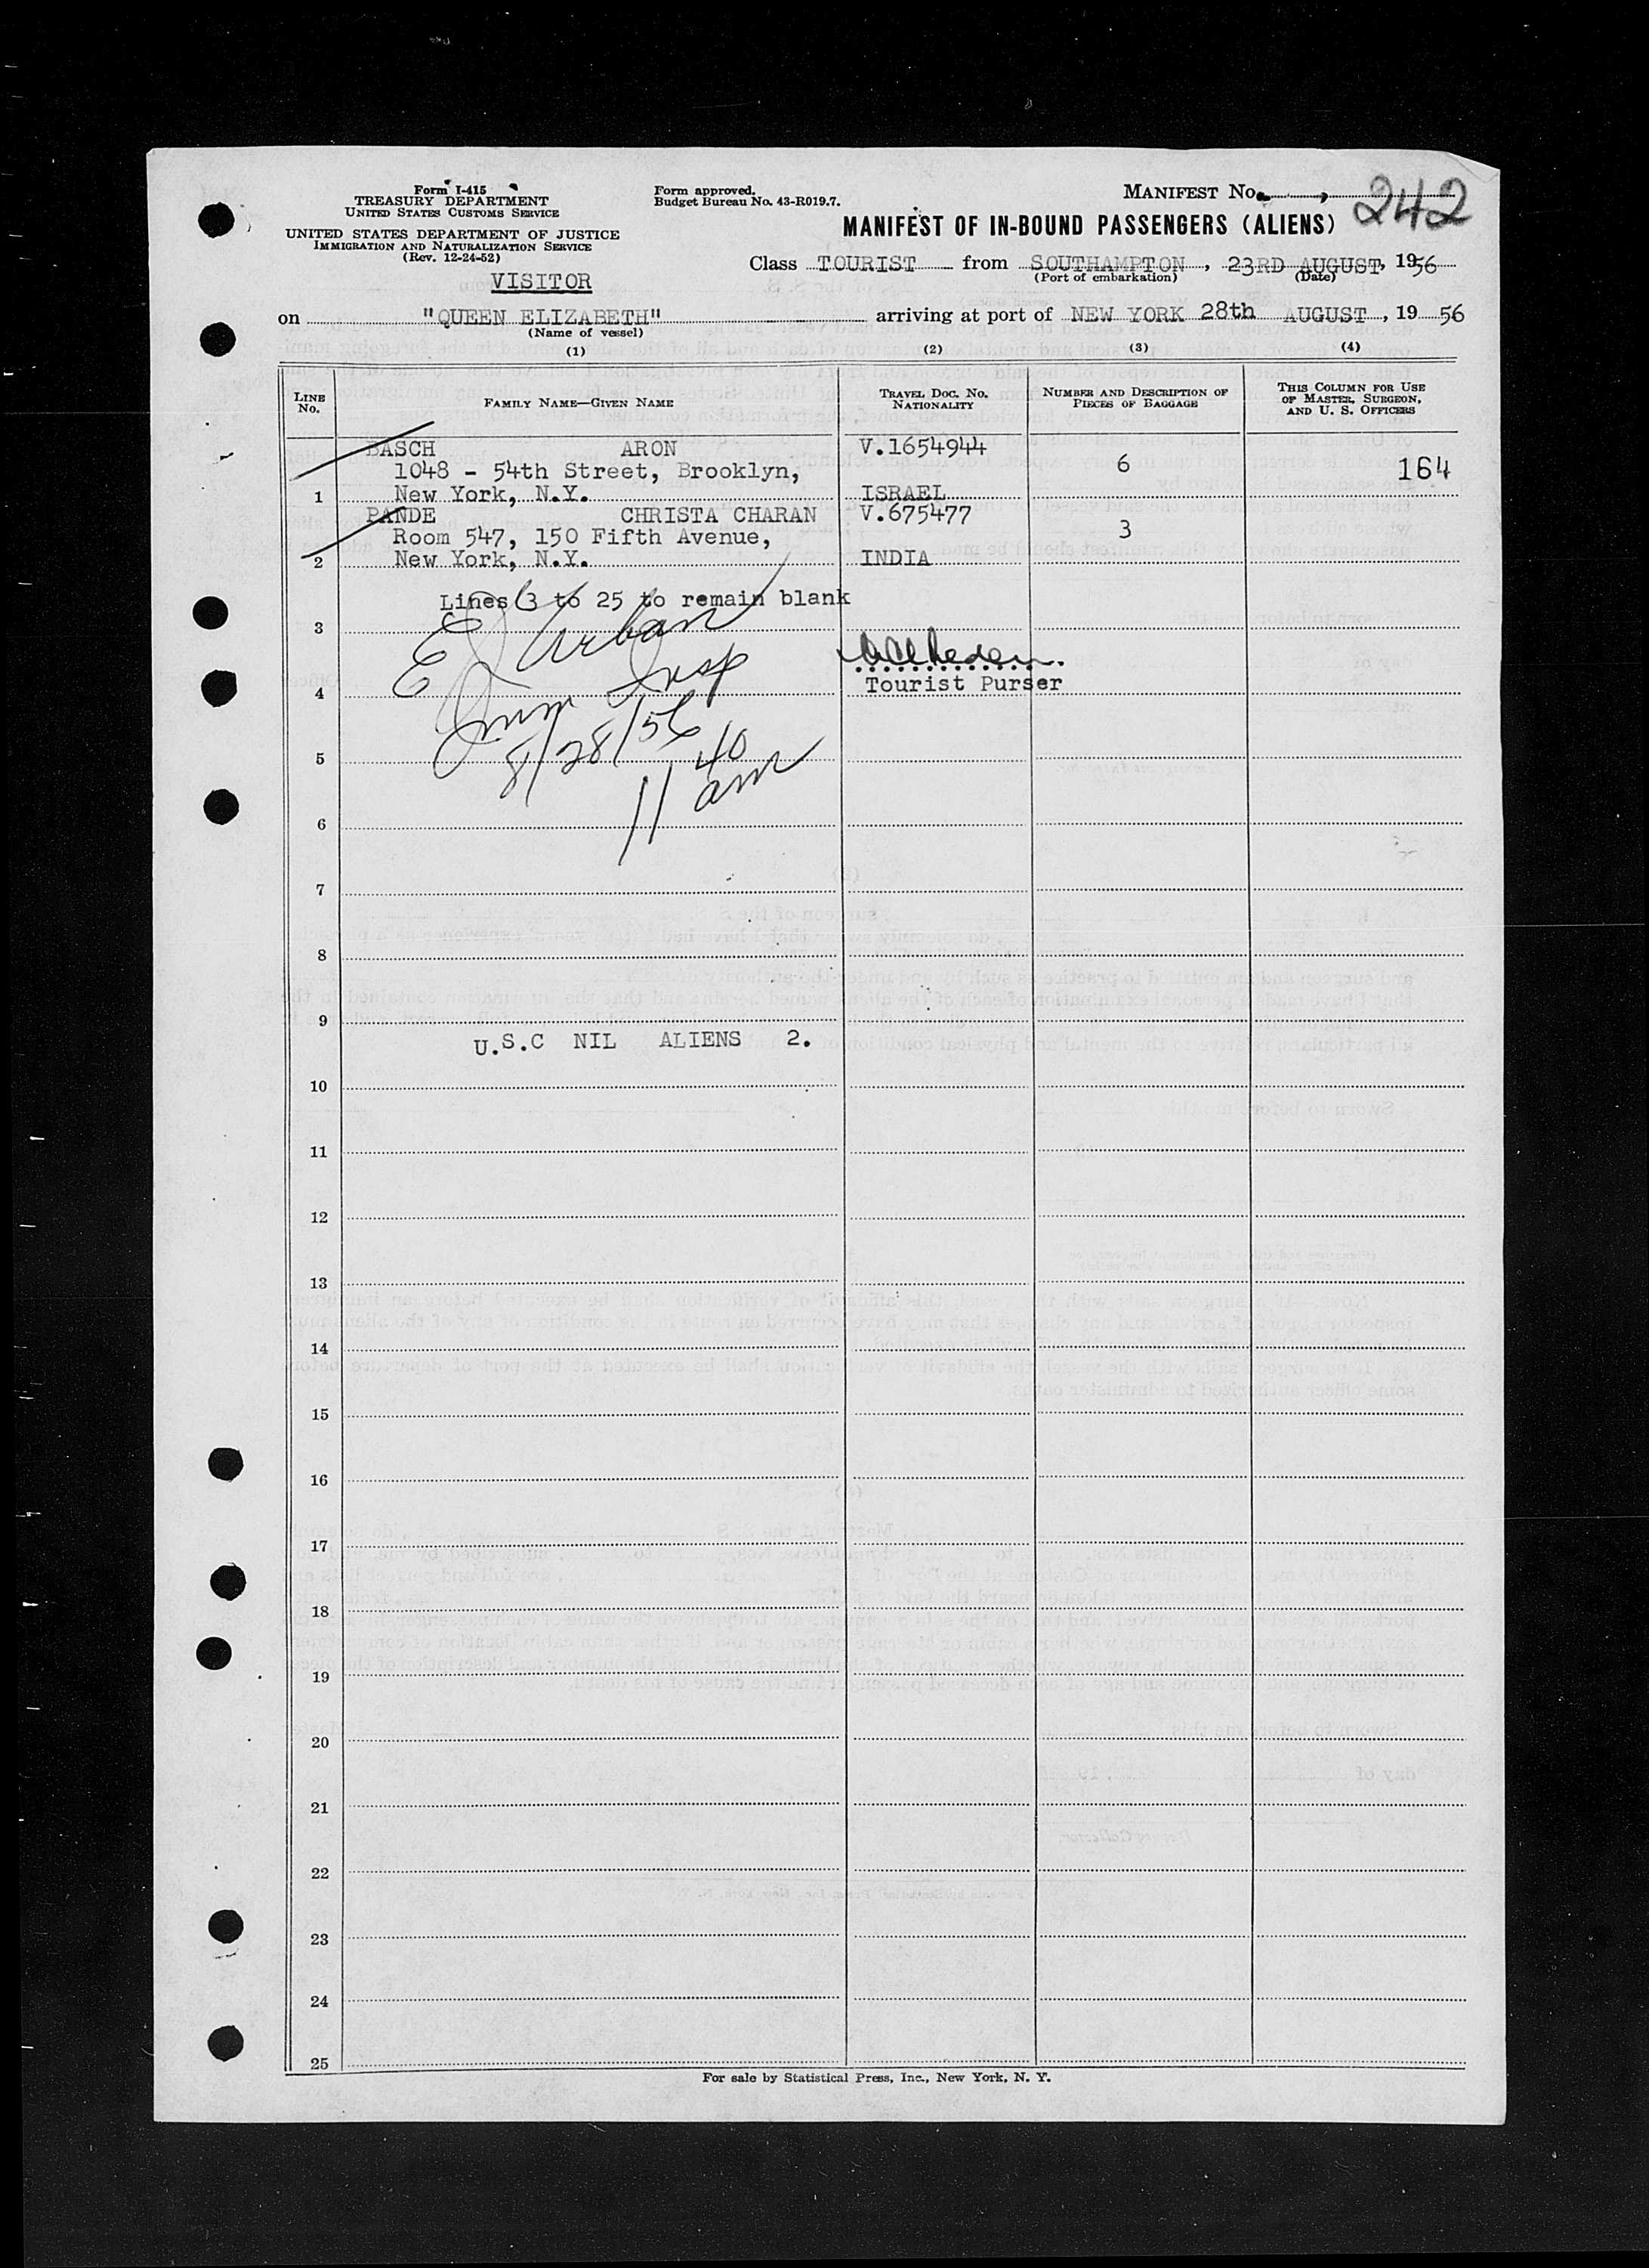 Form I-415
TREASURY DEPARTMENT
UNITED STATES CUSTOMS SERVICE
UNITED STATES DEPARTMENT OF JUSTICE
IMMIGRATION AND NATURALIZATION SERVICE
(Rev. 12-24-52)
VISITOR
Form approved.
Budget Bureau No. 43-R019.7.
MANIFEST No. 242
MANIFEST OF IN-BOUND PASSENGERS (ALIENS)
Class TOURIST from SOUTHAMPTON, 23RD AUGUST, 1956
(Port of embarkation) (Date)
on "QUEEN ELIZABETH" arriving at port of NEW YORK 28th AUGUST, 19 56
(Name of vessel)
(1) (2) (3) (4)
LINE No. FAMILY NAME—GIVEN NAME TRAVEL DOC. NO. NATIONALITY NUMBER AND DESCRIPTION OF PIECES OF BAGGAGE THIS COLUMN FOR USE OF MASTER, SURGEON, AND U. S. OFFICERS
BASCH ARON V.1654944
1048 - 54th Street, Brooklyn, 6 164
1 New York, N.Y. ISRAEL
PANDE CHRISTA CHARAN V.675477
Room 547, 150 Fifth Avenue, 3
2 New York, N.Y. INDIA
Lines 3 to 25 to remain blank
3
E J Urban
4 Tourist Purser
Imm Insp
8/28/56
5
11 40 am
6
7
8
9
U.S.C NIL ALIENS 2.
10
11
12
13
14
15
16
17
18
19
20
21
22
23
24
25
For sale by Statistical Press, Inc., New York, N. Y.